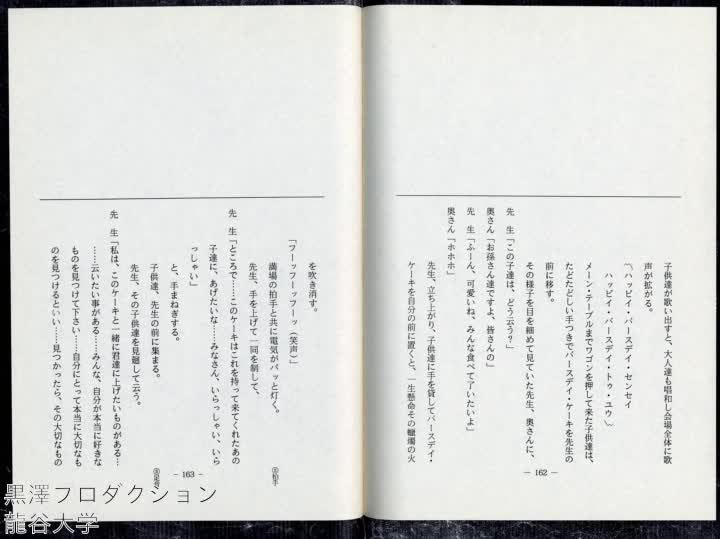 子供達が歌い出すと、大人達も唱和し会場全体に歌
声が拡がる。
〽ハッピイ・バースデイ・センセイ
ハッピイ・バースデイ・トゥ・ユウ〽
メーン・テーブルまでワゴンを押して来た子供達は、
たどたどしい手つきでバースデイ・ケーキを先生の
前に移す。
その様子を目を細めて見ていた先生、奥さんに、
先　生「この子達は、どう云う？」
奥さん「お孫さん達ですよ、皆さんの」
先　生「ふーん、可愛いね、みんな食べて了いたいよ」
奥さん「ホホホ」
先生、立ち上がり、子供達に手を貸してバースデイ・
ケーキを自分の前に置くと、一生懸命その蠟燭の火
－ 162 －
を吹き消す。
「フーッフーッフーッ（笑声）」
満場の拍手と共に電気がパッと灯く。
先生、手を上げて一同を制して、
先　生「ところで……このケーキはこれを持って来てくれたあの
子達に、あげたいな……みなさん、いらっしゃい、いら
っしゃい」
と、手まねぎする。
子供達、先生の前に集まる。
先生、その子供達を見廻して云う。
先　生「私は、このケーキと一緒に君達に上げたいものがある…
……云いたい事がある……みんな、自分が本当に好きな
ものを見つけて下さい……自分にとって本当に大切なも
のを見つけるといい……見つかったら、その大切なもの
－ 163 －
黒澤プロダクション
龍谷大学